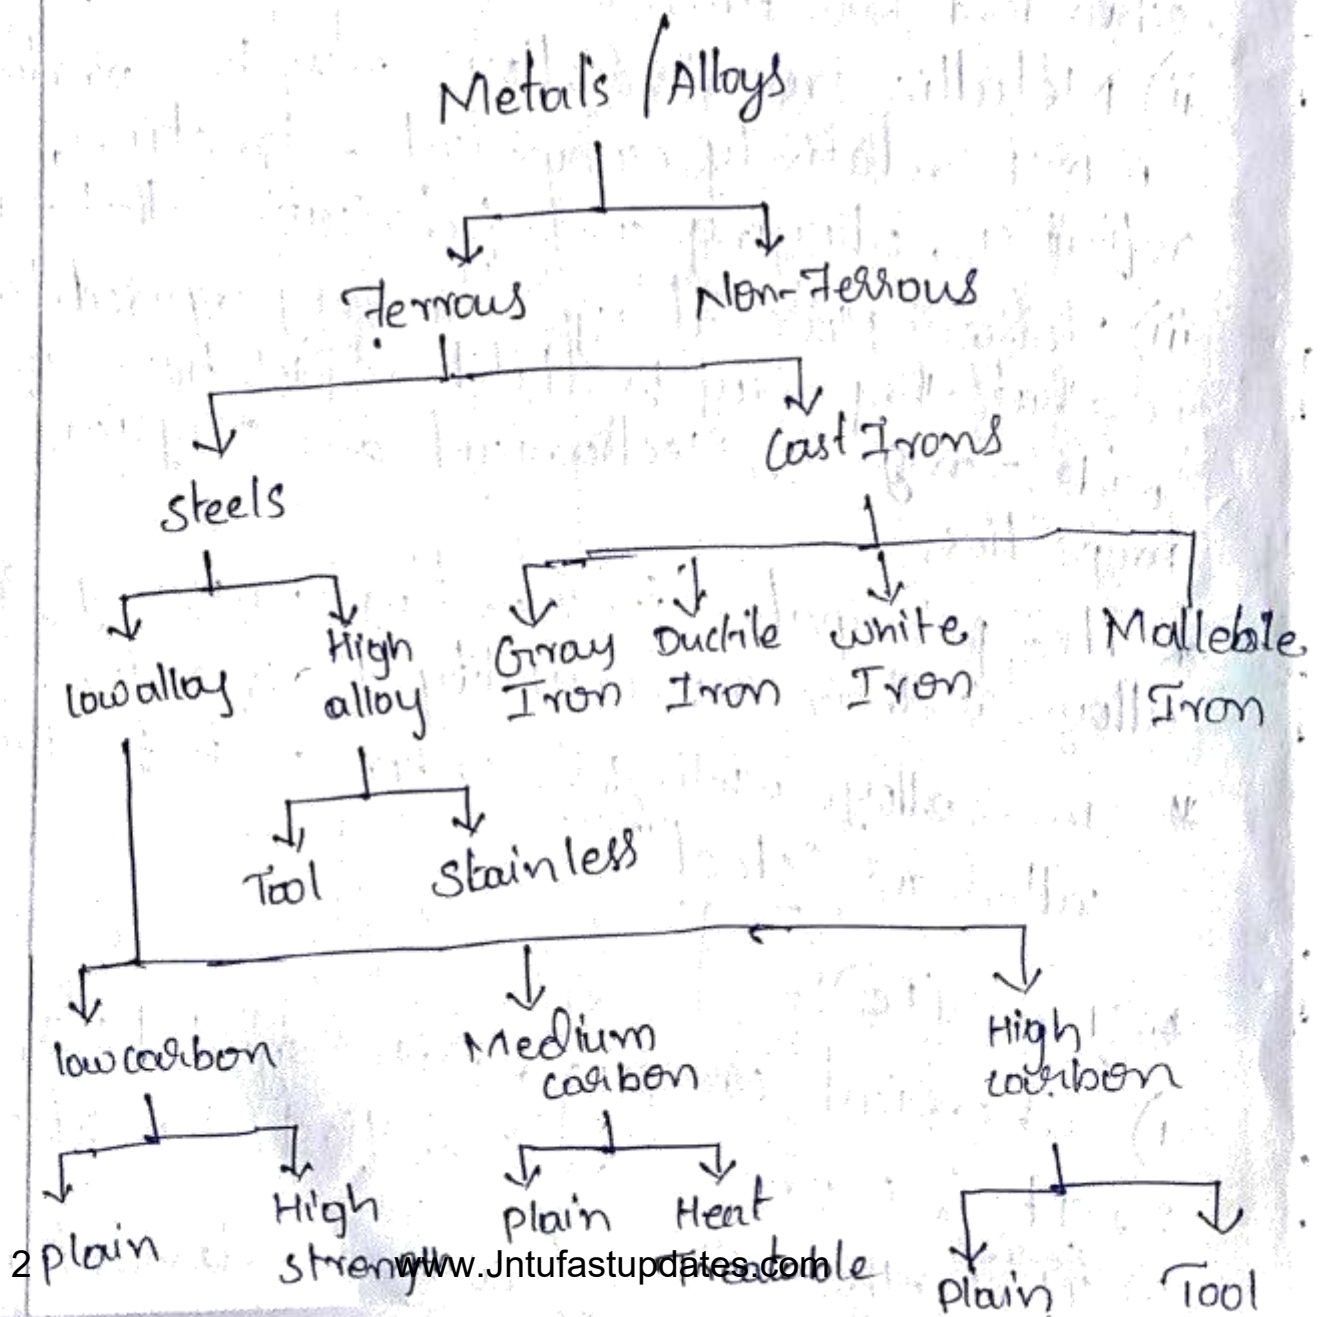 Metals / Alloys
Ferrous
Non-Ferrous
Steels
Cast Irons
low alloy
High
alloy
Gray
Iron
Ductile
Iron
White
Iron
Malleble
Iron
Tool
Stainless
low carbon
Medium
carbon
High
carbon
plain
High
strength
plain
Heat
Treatable
plain
Tool
2
www.Jntufastupdates.com